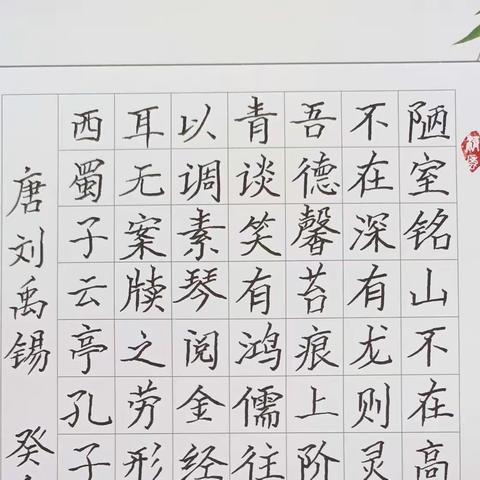 陋室铭山不在高
不在深有龙则灵
吾德馨苔痕上阶
青谈笑有鸿儒往
以调素琴阅金经
耳无案牍之劳形
西蜀子云亭孔子
唐刘禹锡癸